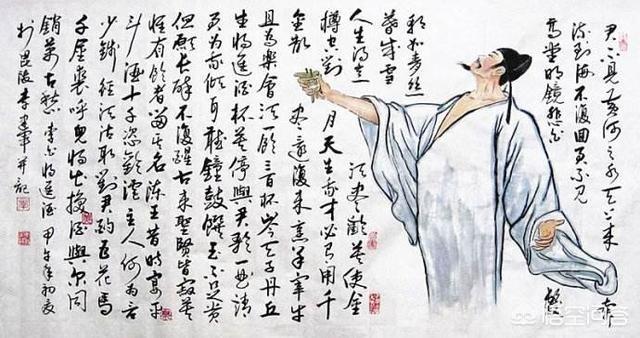 君不見黄河之水天上来奔
流到海不復回君不見
高堂明鏡悲白髮
朝如青丝
暮成雪
人生得意
须尽歡莫使金
樽空對月天生我才必有用千
金散尽還復来烹羊宰牛
且為樂會须一飲三百杯岑夫子丹丘
生将進酒杯莫停與君歌一曲請
君為我倾耳聴鐘鼓饌玉不足貴
但願長醉不復醒古来聖賢皆寂莫
惟有飲者留其名陳王昔時宴平
斗酒十千恣歡謔主人何為言
少钱径须沽取對君酌五花馬
千金裘呼兒将出换酒與尔同
銷萬古愁李白将進酒甲午年初夏
於毘陵李軍并記
悟空问答